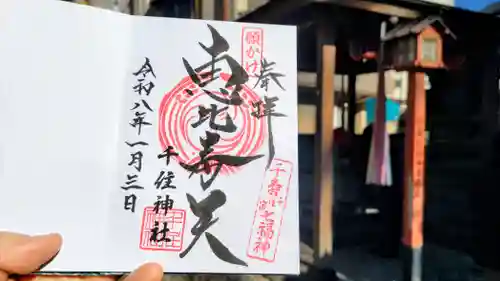 願かけ
奉拝
恵比寿天
千寿七福神
千住神社
令和八年一月三日